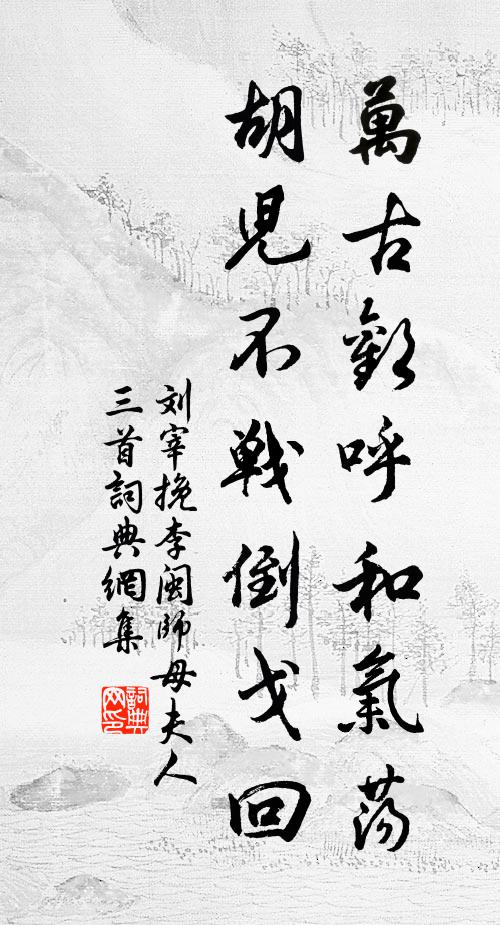 萬古歡呼和氣蕩
胡児不戦倒戈回
刘宰挽李闽師母夫人
三首詞典網集
詞典网印